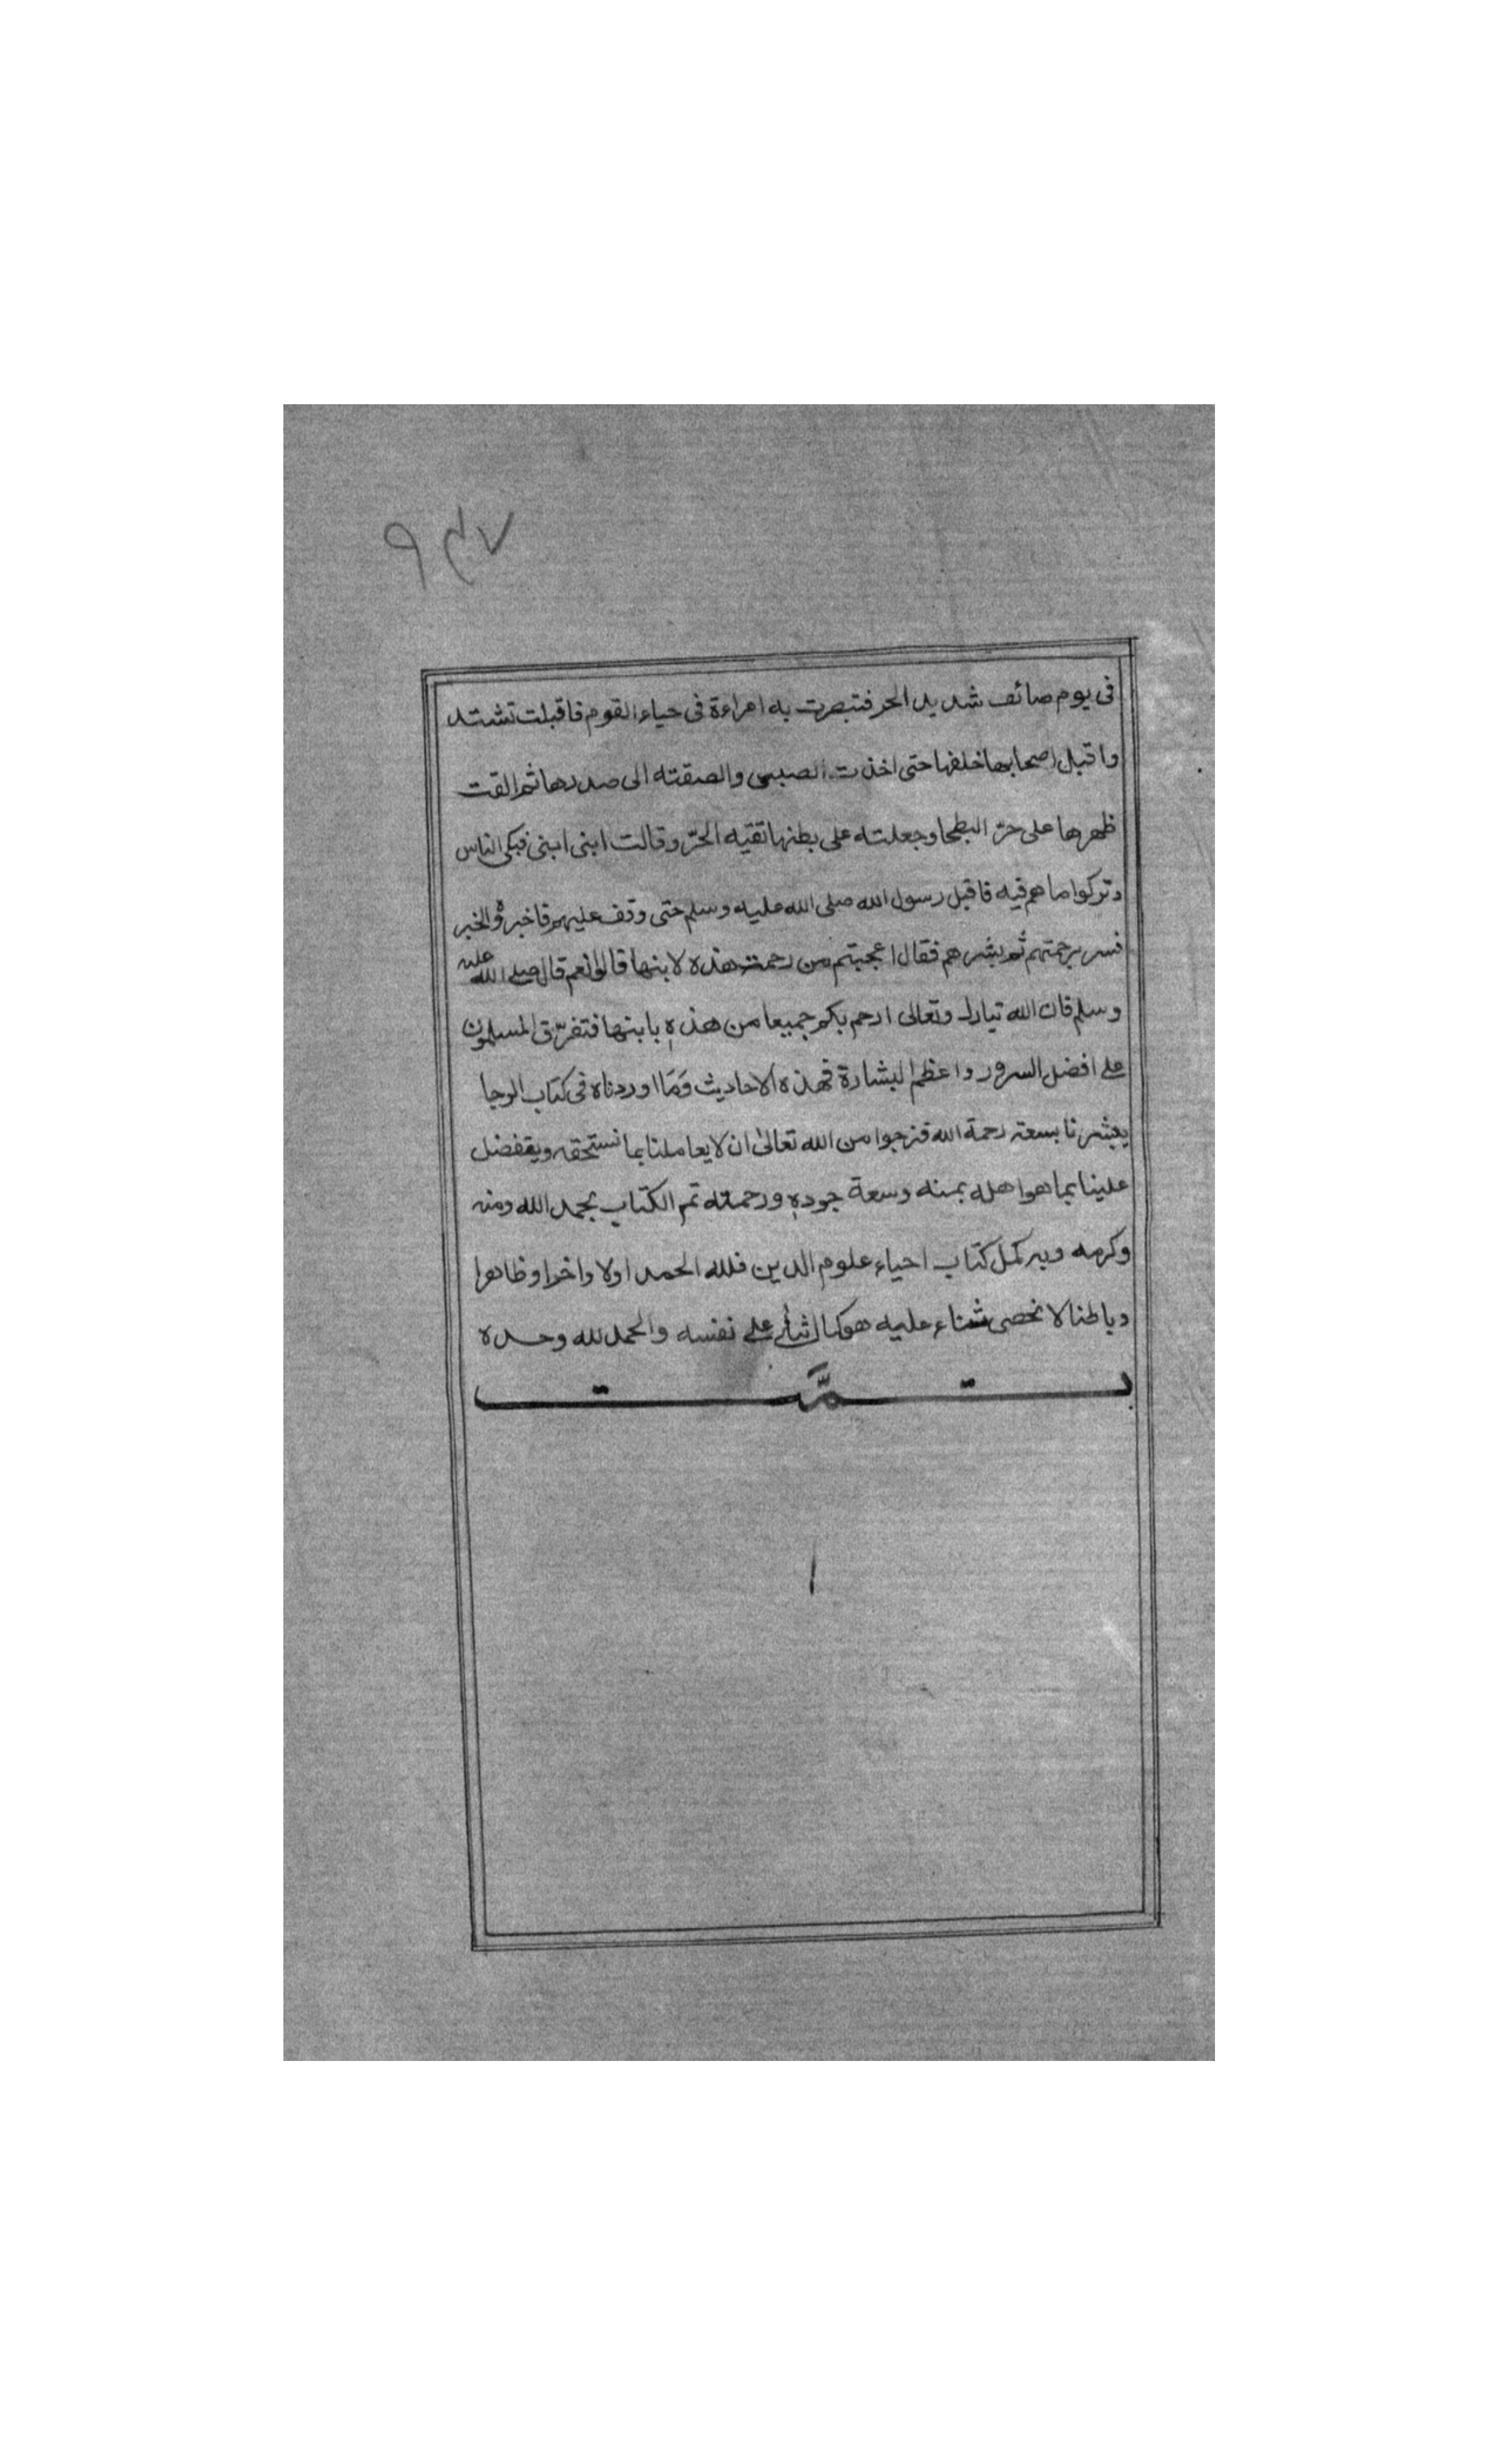 في يوم صائف شديد الحر فتبصرت به امراءة في حياء القوم فاقبلت تشتد
واقبل اصحابها خلفها حتى اخذت الصبي والصقته الى صدرها ثم القت
ظهرها على حرّ البطحا وجعلته على بطنها تقيه الحرّ وقالت ابنى ابنى فبكى الناس
وتركوا ما هم فيه فاقبل رسول الله صلى الله عليه وسلم حتى وقف عليهم فاخبروه الخبر
فسر برحمتهم ثم بشرهم فقال اعجبتم من رحمت هذه لابنها قالوا نعم قال صلى الله عليه
وسلم فان الله تبارك وتعالى ارحم بكم جميعا من هذه بابنها فتفرّق المسلمون
على افضل السرور واعظم البشارة فهذه الاحاديث ومّا اوردناه في كتاب الرجا
يبشرنا بسعة رحمة الله فنرجوا من الله تعالى ان لا يعاملنا بما نستحقه ويتفضل
علينا بما هو اهله بمنه وسعة جوده ورحمته تم الكتاب بحمد الله ومنه
وكرمه وبه كمل كتاب احياء علوم الدين فلله الحمد اولا واخرا وظاهرا
وباطنا لا نحصى ثناء عليه هو كما اثنى على نفسه والحمد لله وحده
تمّت